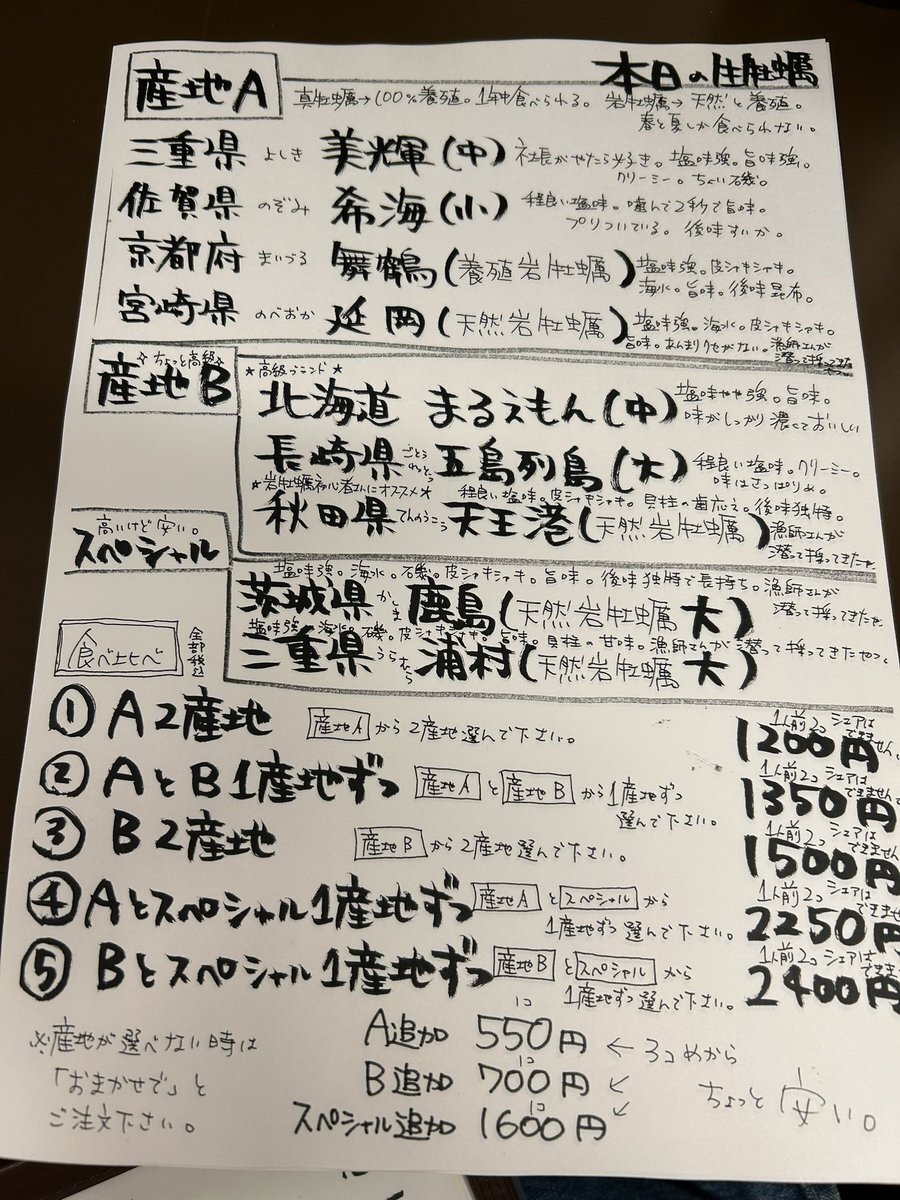 本日の生牡蠣
産地A
真牡蠣→100%養殖。1年中食べられる。 岩牡蠣→天然と養殖。
春と夏しか食べられない。
三重県 よしき 美輝(中) 社長がやたら好き。塩味強。旨味強。
クリーミー。ちょい磯。
佐賀県 のぞみ 希海(小) 程良い塩味。噛んで2秒で旨味。
プリついている。後味すいか。
京都府 まいづる 舞鶴(養殖岩牡蠣) 塩味強。皮シャキシャキ。
海水。旨味。後味昆布。
宮崎県 のべおか 延岡(天然岩牡蠣) 塩味強。海水。皮シャキシャキ。
旨味。あんまりクセがない。漁師さんが
潜って採ってきたやつ。
☆ちょっと高級☆
産地B
★高級ブランド★
北海道 まるえもん(中) 塩味やや強。旨味。
味がしっかり濃くておいしい
長崎県 ごとうれっとう 五島列島(大) 程良い塩味。クリーミー。
味はさっぱりめ。
★岩牡蠣初心者さんにオススメ★ 程良い塩味。皮シャキシャキ。貝柱の歯応え。後味独特。
秋田県 てんのうこう 天王港(天然岩牡蠣) 漁師さんが
潜って採ってきたやつ
高いけど安い。
スペシャル
塩味強。海水。石磯。皮シャキシャキ。旨味。後味独特で長持ち。漁師さんが
茨城県 かしま 鹿島(天然岩牡蠣 大) 潜って採ってきたやつ
塩味強。海水。磯。皮シャキシャキ。旨味。貝柱の甘味。漁師さんが潜って採ってきたやつ。
三重県 うらむら 浦村(天然岩牡蠣 大)
食べ比べ 全部税込
① A2産地 産地Aから2産地選んで下さい。 1人前2コ シェアはできません。 1200円
② AとB1産地ずつ 産地Aと産地Bから1産地ずつ
選んで下さい。 1人前2コ シェアはできません 1350円
③ B2産地 産地Bから2産地選んで下さい。 1人前2コ シェアはできません 1500円
④ Aとスペシャル1産地ずつ 産地Aとスペシャルから
1産地ずつ選んで下さい。 1人前2コ シェアはできません 2250円
⑤ Bとスペシャル1産地ずつ 産地Bとスペシャルから
1産地ずつ選んで下さい。 1人前2コ シェアはできま 2400円
※産地が選べない時は
「おまかせで」と
ご注文下さい。
A追加 1コ 550円 ← 3コめから
B追加 1コ 700円 ↙ ちょっと安い。
スペシャル追加 1コ 1600円 ↙